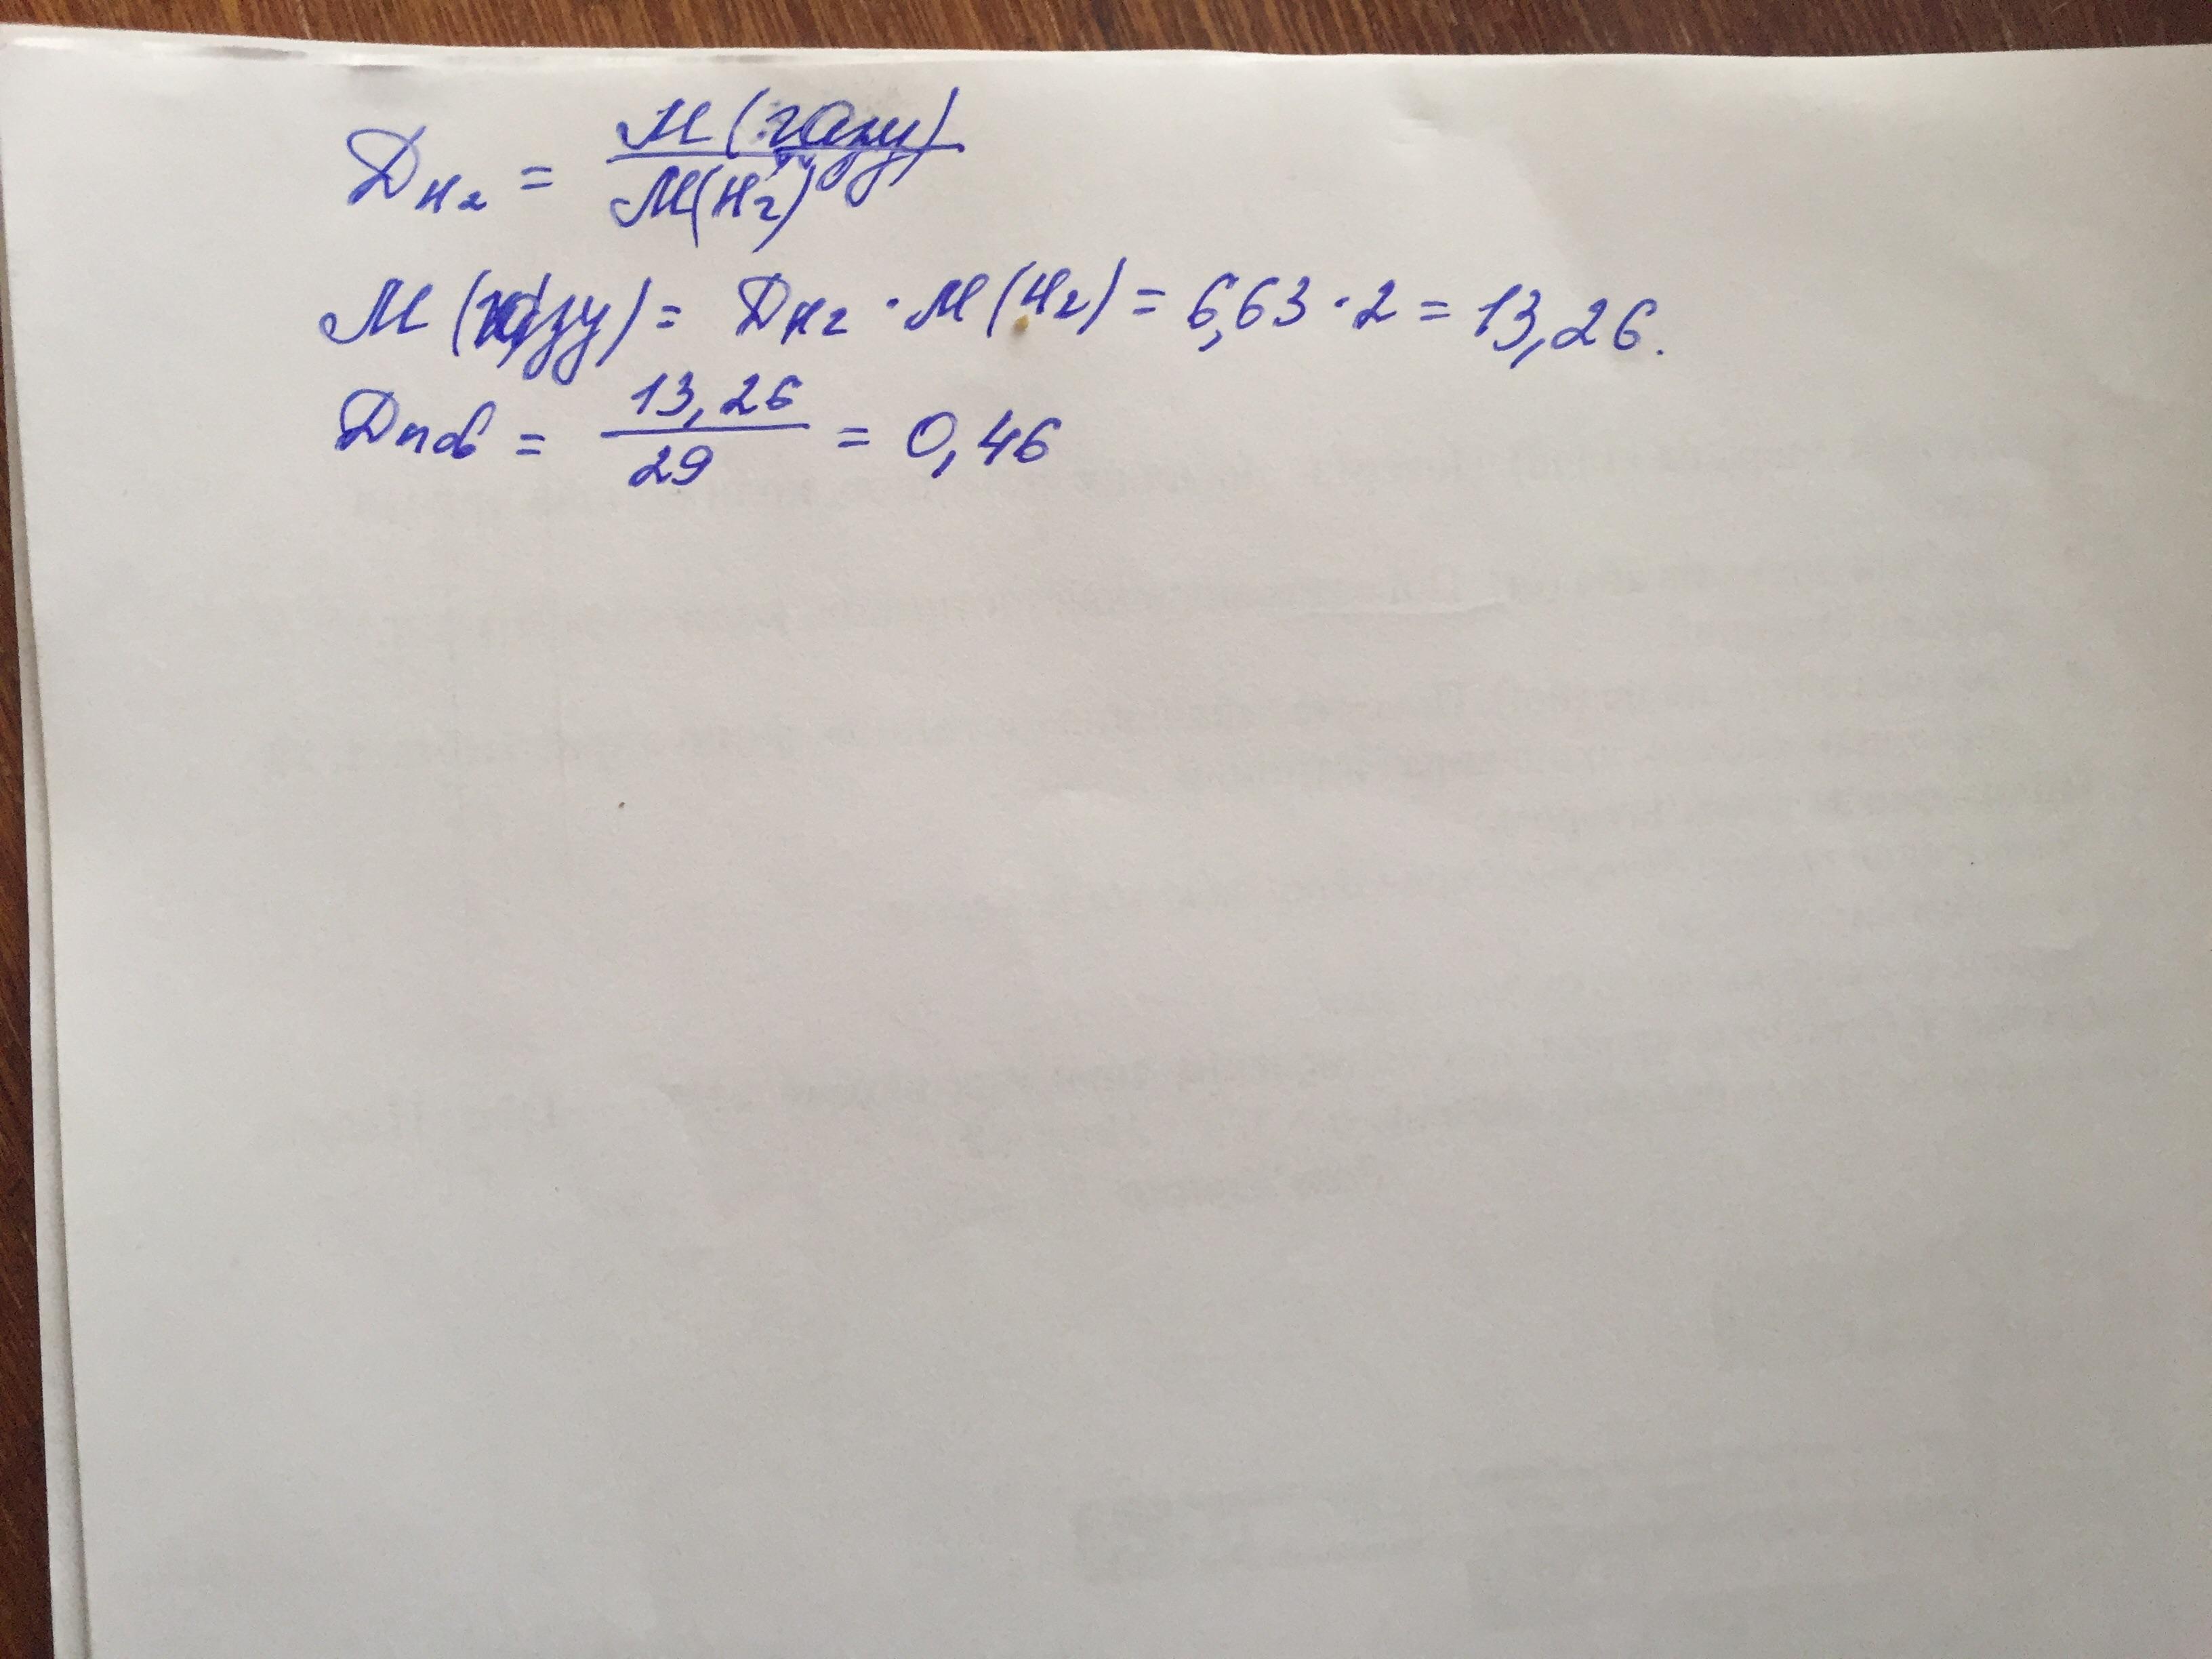 Д H2 = М (газу) / М(H2)
М (газу) = Д H2 · М (H2) = 6,63 · 2 = 13,26.
Д пов = 13,26 / 29 = 0,46